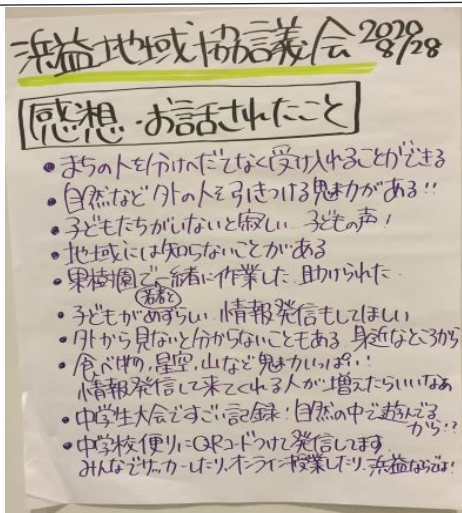 浜益地域協議会 2020 8/28
感想・お話されたこと
・まちの人を分けへだてなく受け入れることができる
・自然など外の人を引きつける魅力がある!!
・子どもたちがいないと寂しい 子どもの声!
・地域には知らないことがある
・果樹園で一緒に作業した.助けられた.
若者と
・子どもがめずらしい.情報発信もしてほしい
・外から見ないと分からないこともある.身近なところから
・食べ物,星空,山など魅力いっぱい!
情報発信して来てくれる人が増えたらいいなあ
・中学生大会ですごい記録!自然の中で遊んでる
から!?
・中学校便りにQRコードつけて発信してます
みんなでサッカーしたり,オンライン授業したり,浜益ならでは!